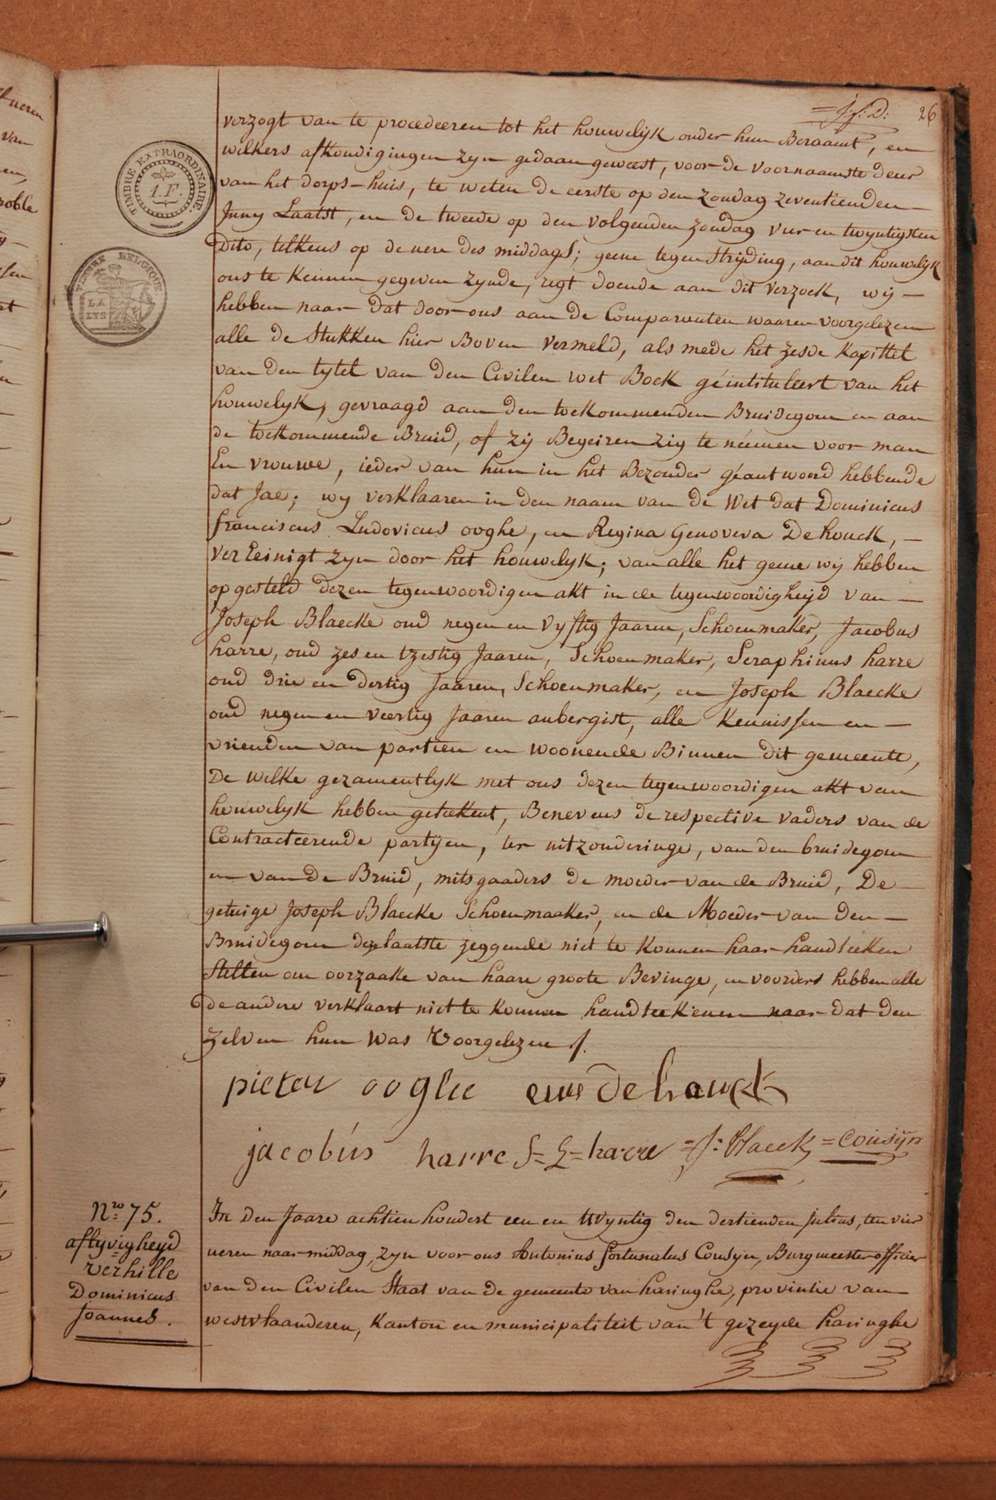 26
verzogt van te procedeeren tot het houwelijk onder hun Beraamt, en
welkers afkondigingen zijn gedaan geweest, voor de voornaamste deur
van het dorps-huis, te weten de eerste op den zondag zeventienden
Juny Laatst, en de tweede op den volgenden zondag vier en twyntigsten
dito, telkens op de uere des middags; geene tegenstrijding, aan dit houwelijk
ons te kennen gegeven zynde, regt doende aan dit verzoek, wij
hebben naar dat door ons aan de Comparanten waaren voorgelezen
alle de Stukken hier Boven vermeld, als mede het zesde Kapittel
van den tytel van den Civilen wet Boek géintituleert van het
houwelyk, gevraagd aan den toekommenden Bruidegom en aan
de toekommende Bruid, of zij Begeiren zig te néemen voor man
En vrouwe, ieder van hun in het Bezonder géantwoord hebbende
dat Jae; wy verklaaren in den naam van de Wet dat Dominicus
franciscus Ludovicus ooghe, en Regina Genoveva Dehouck,
vereinigt zyn door het houwelyk; van alle het geene wij hebben
opgesteld dezen tegenwoordigen akt in de tegenwoordigheijd van
Joseph Blaecke oud negen en vyftig Jaaren, Schoenmaker, Jacobus
harre, oud zes en tzestig Jaaren, Schoenmaker, Seraphinus harre
oud drie en dertig Jaaren, Schoenmaker, en Joseph Blaecke
oud negen en veertig Jaaren aubergist, alle Kennissen en
vrienden van partien en woonende Binnen dit gemeente,
De welke gezamentlyk met ons dezen tegenwoordigen akt van
houwelyk hebben getekent, Benevens de respective vaders van de
Contracteerende partijen, ter uitzonderinge, van den bruidegom
en van de Bruid, mitsgaaders de moeder van de Bruid, De
getuige Joseph Blaecke Schoenmaaker, en de Moeder van den
Bruidegom deze laatste zeggende niet te konnen haar handteeken
stellen om oorzaake van haare groote Bevinge, en voorders hebben alle
de andere verklaart niet te konnen handteekenen naar dat den
zelven hun was voorgelezen
pieter ooghe dehouck
jacobus harre S=L=harre =J: Blaeck =Cousijn
Nro 75.
aflyvigheyd
verhille
Dominicus
Joannes.
In den Jaare achtien hondert een en twyntig den dertienden Julius, ten vier
ueren naar middag, zyn voor ons Antonius fortunatus Cousyn, Burgmeester officier
van den Civilen Staat van de gemeente van haringhe, provintie van
westvlaanderen, Kanton en municipaliteit van 't gezeyde haringhe
TIMBRE EXTRAORDINAIRE.
1.F.
TIMBRE BELGIQUE
LA
LYS